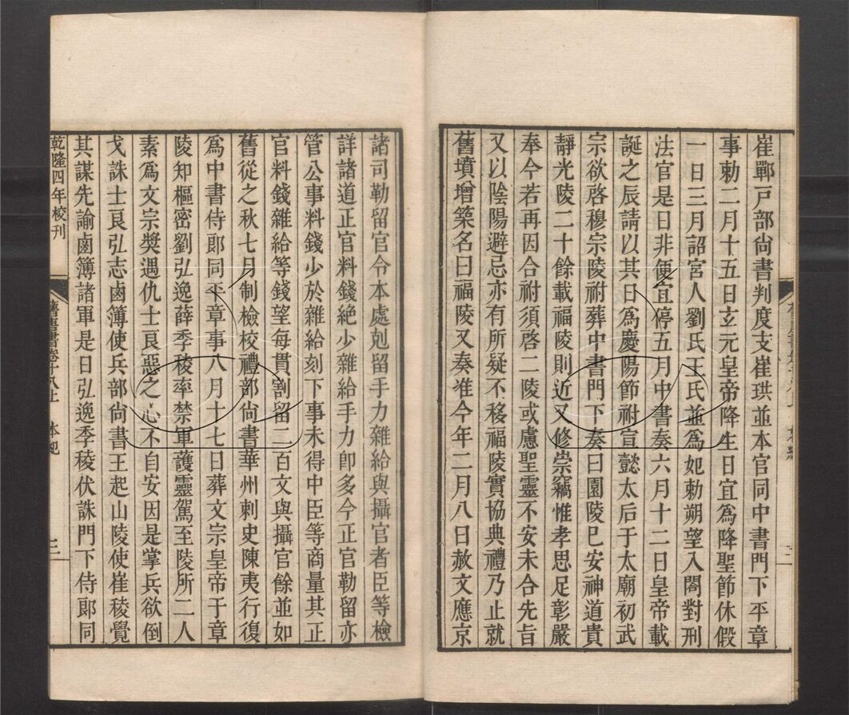 崔鄲戸部尚書判度支崔珙並本官同中書門下平章
事勅二月十五日玄元皇帝降生日宜為降聖節休假
一日三月詔宮人劉氏王氏並為妃勅朔望入閤對刑
法官是日非便宜停五月中書奏六月十二日皇帝載
誕之辰請以其日為慶陽節祔宣懿太后于太廟初武
宗欲啓穆宗陵祔葬中書門下奏曰園陵已安神道貴
靜光陵二十餘載福陵則近又修崇竊惟孝思足彰嚴
奉今若再因合祔須啓二陵或慮聖靈不安未合先旨
又以陰陽避忌亦有所疑不移福陵實協典禮乃止就
舊墳增築名曰福陵又奏准今年二月八日赦文應京
諸司勒留官令本處剋留手力雜給與攝官者臣等檢
詳諸道正官料錢絶少雜給手力卽多今正官勒留亦
管公事料錢少於雜給刻下事未得中臣等商量其正
官料錢雜給等錢望每貫割留二百文與攝官餘並如
舊從之秋七月制檢校禮部尚書華州刺史陳夷行復
為中書侍郞同平章事八月十七日葬文宗皇帝于章
陵知樞密劉弘逸薛季稜率禁軍護靈駕至陵所二人
素為文宗奬遇仇士良惡之心不自安因是掌兵欲倒
戈誅士良弘志鹵簿使兵部尚書王起山陵使崔稜覺
其謀先諭鹵簿諸軍是日弘逸季稜伏誅門下侍郞同
乾隆四年校刊
舊唐書卷十八上 本紀 三